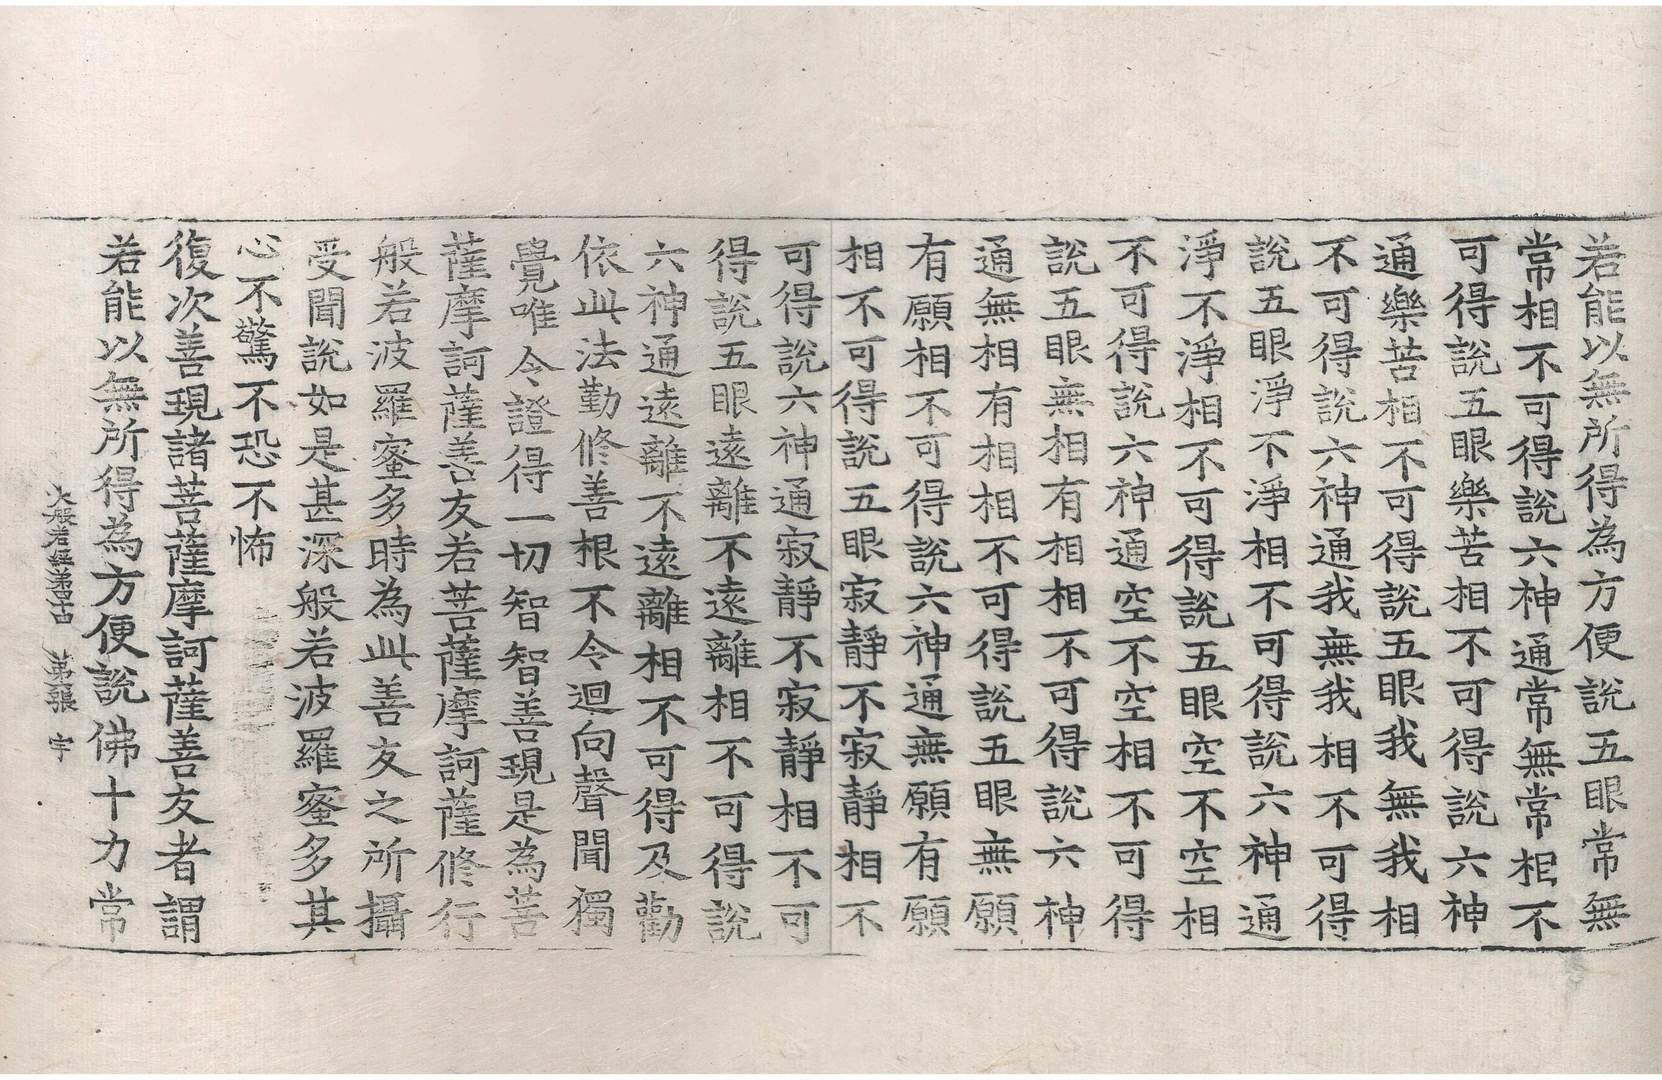 若能以無所得為方便說五眼常無
常相不可得說六神通常無常相不
可得說五眼樂苦相不可得說六神
通樂苦相不可得說五眼我無我相
不可得說六神通我無我相不可得
說五眼淨不淨相不可得說六神通
淨不淨相不可得說五眼空不空相
不可得說六神通空不空相不可得
說五眼無相有相相不可得說六神
通無相有相相不可得說五眼無願
有願相不可得說六神通無願有願
相不可得說五眼寂靜不寂靜相不
可得說六神通寂靜不寂靜相不可
得說五眼遠離不遠離相不可得說
六神通遠離不遠離相不可得及勸
依此法勤修善根不令迴向聲聞獨
覺唯令證得一切智智善現是為菩
薩摩訶薩善友若菩薩摩訶薩修行
般若波羅蜜多時為此善友之所攝
受聞說如是甚深般若波羅蜜多其
心不驚不恐不怖
復次善現諸菩薩摩訶薩善友者謂
若能以無所得為方便說佛十力常
大般若經第 第 張